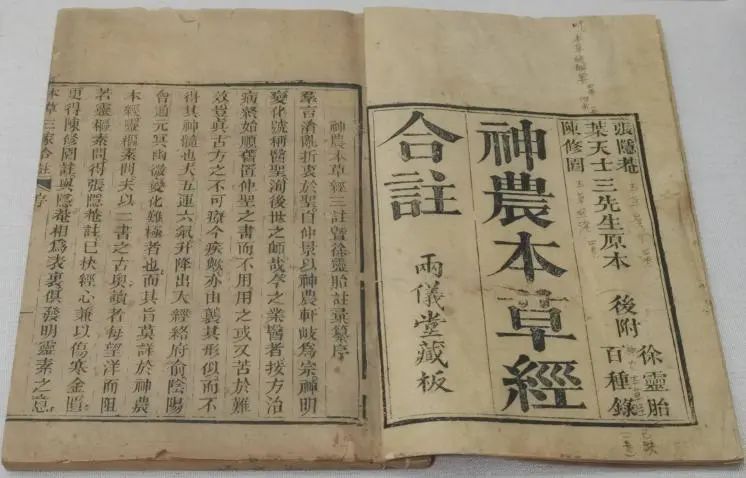 張隱菴
葉天士三先生原本
陳修園
後附
徐靈胎
百種錄
神農本草經
合註
兩儀堂藏板
神農本草經三註暨徐靈胎註彙纂序
羣言淆亂折衷於聖自仲景以神農軒岐爲宗神明
變化號稱醫聖洵後世之師哉今之業醫者按方治
病終始順舊置仲聖之書而不用用之或又苦於難
效豈眞古方之不可療今疾歟亦由襲其形似而不
得其神髓也夫五運六氣升降出入經絡府俞陰陽
會通元冥幽微變化難極者也而其旨莫詳於神農
本經靈樞素問夫以二書之古奧讀者每望洋而阻
若靈樞素問得張隱菴註已快經心兼以傷寒金匱
更得陳修園註與隱菴相爲表裏俱發明靈素之意
本草三家合註 序